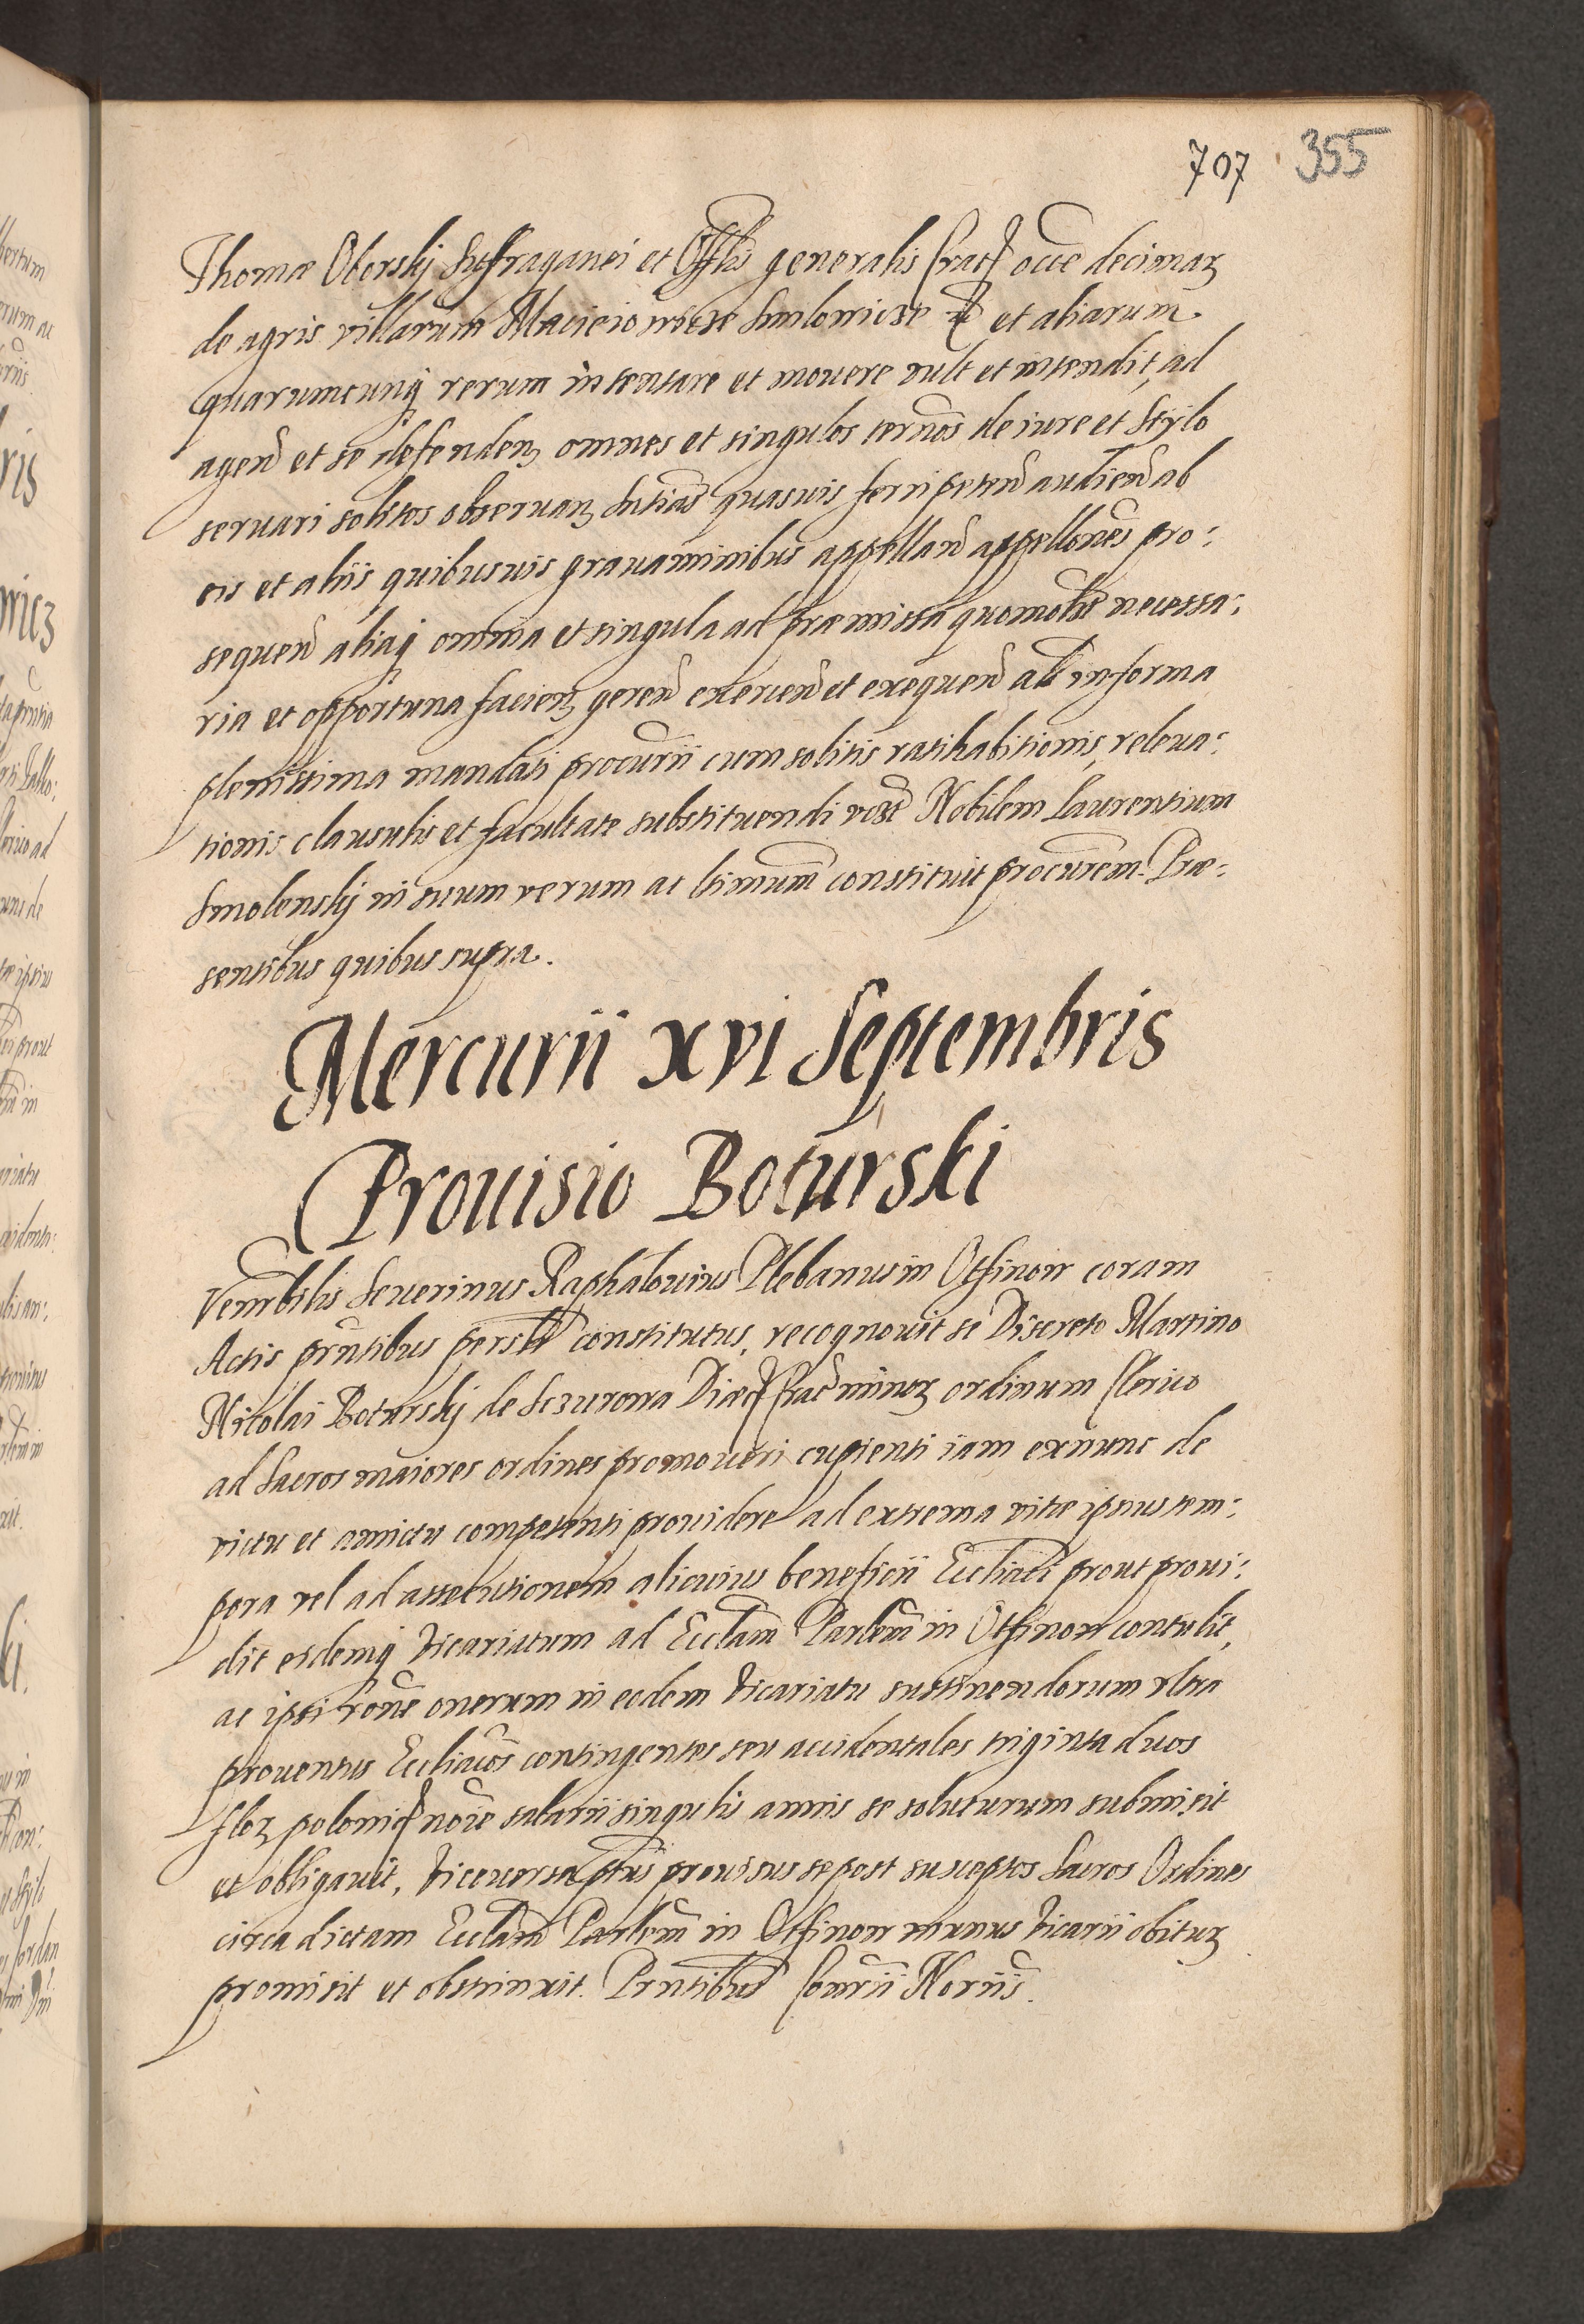 707 355
Thomæ Oborskj Suffraganei et Offlis generalis Crac occe decimarz
de agris villarum Macieiowicze Smlowicze et et aliarum
quarumcunq rerum intentare et mouere vult et intendit, ad
agend et se defendenz omnes et singulos termos de iure et Stylo
seruari solitos obseruanz Sntias quasuis ferri petend audiend ab
eis et aliis quibusuis grauaminibus appelland appellones pro:
sequend aliaq omnia et singula ad præmissa quomolt necessa:
ria et opportuna facienz gerend exercend et exequend alt in forma
plenissima mandati procurii cum solitis ratihabitionis, releua:
tionis clausulis et facultate substituendi Nobilem Laurentium
Smolenskj in suum verum ac ltimum constituit procurem. Præ:
sentibus quibus supra.
Mercurii xvi Septembris
Prouisio Boturski
Venrbilis Seuerinus Raphalouius Plebanus in Otfinow coram
Actis prntibus persltr constitutus, recognouit se Discreto Martino
Nicolai Boturskj de Sczurowa Diæc Crac minorz ordinum Clerico
ad Sacros maiores ordines promoueri cupienti iam exnunc de
victu et amictu competenti prouidere ad extrema vitæ ipsius tem:
pora vel ad assecutionem alicuius beneficii Eccliaci prout proui:
dit eidemq Vicariatum ad Ecclam Parlem in Otfinow contulit,
ac ipsi rone onerum in eodem Vicariatu sustinendorum vltra
prouentus Eccliacos contingentes seu accidentales triginta duos
florz polonic noie salarii singulis annis se soluturum submisit
et obligauit, Viceuersa ptus prouisus se post susceptos Sacros Ordines
circa dictam Ecclam Parlem in Otfinow munus Vicarii obiturz
promisit et obstrinxit. Prntibus Conrii Noriis.